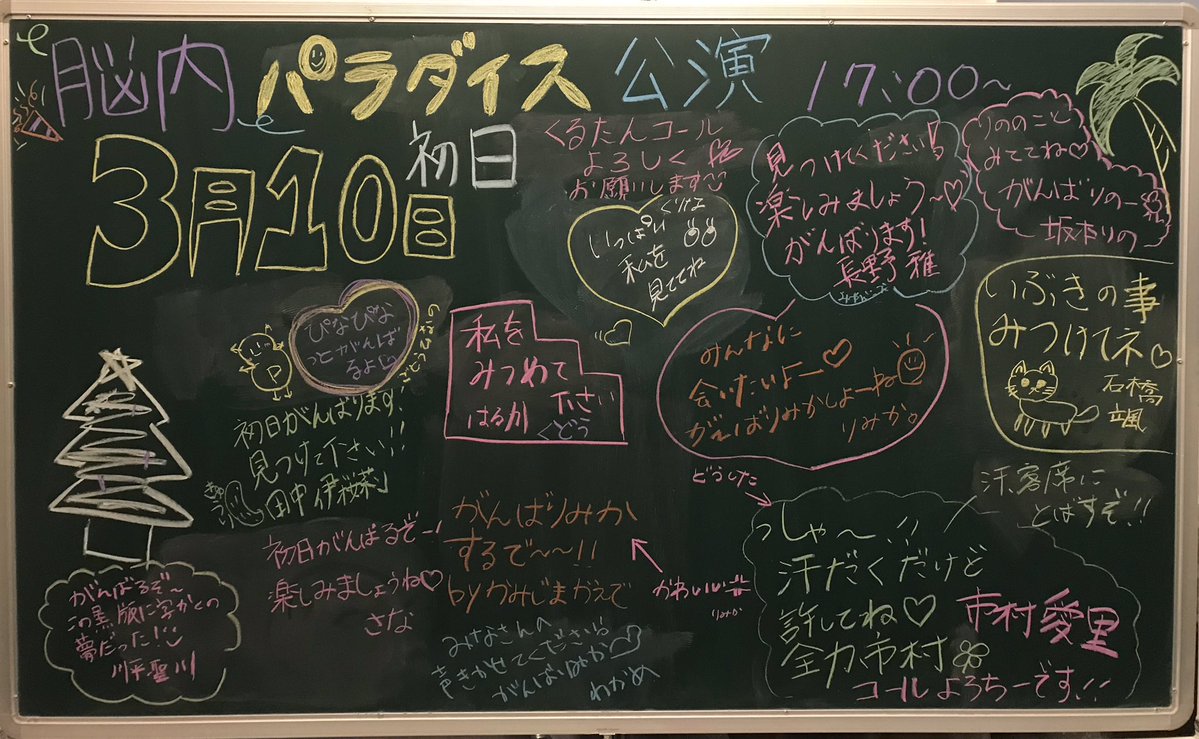 脳内パラダイス公演 17:00~
3月10日
初日
くるたんコール
よろしく
お願いします
いっぱい
私を
見ててね
見つけてください!
楽しみましょう〜♡
がんばります!
長野 雅
りののこと
みててね♡
がんばりのー
坂本りの
いぶきの事
みつけてネ♡
石橋
颯
ぴなぴな
っとがんば
るよ♡
P
初日がんばります!
見つけて下さい!!
田中 伊桜莉
私を
みつめて
下さい
はるか
くどう
みんなに
会いたいよー♡
がんばりみかしよーね
りみか。
どうした
汗客席に
とばすぞ!!
っしゃ〜!!
汗だくだけど
許してね♡
全力市村
市村愛里
コールよろちーです!!
初日がんばるぞー!
楽しみましょうね♡
さな
がんばりみか
するで〜〜!!
byかみじまかえで
かわいい
りみか
みなさんの
声きかせてください
がんばゆか
わかめ
がんばるぞ〜
この黒版に字かくの
夢だった!
川平聖